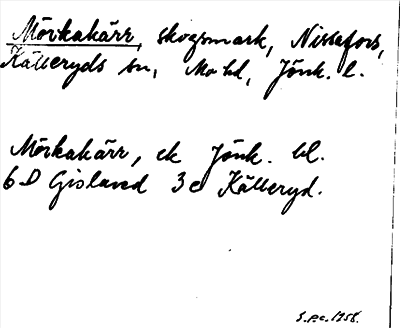 Mörkakärr, skogsmark, Nissafors,
Källeryds sn, Mo hd, Jönk. l.
Mörkakärr, ek Jönk. bl.
6 D Gislaved 3 c Källeryd.
S.P.C. 1958.